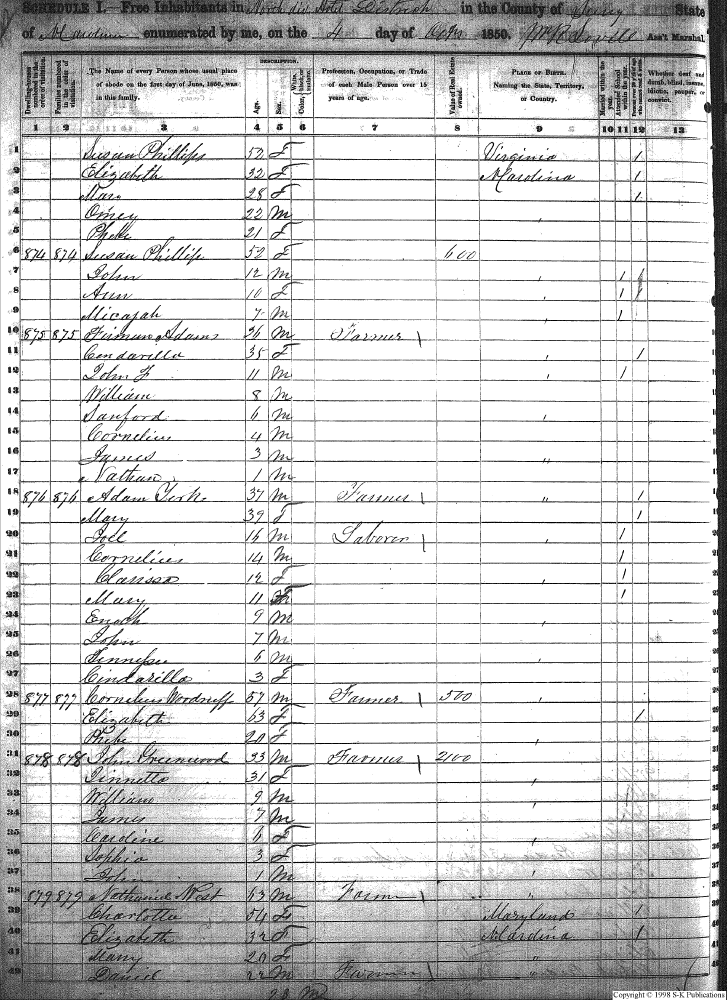 SCHEDULE I.—Free Inhabitants in North div District in the County of Surry State
of N. Carolina enumerated by me, on the 4 day of Octr 1850. Ass't Marshal
DESCRIPTION.
Dwelling-houses numbered in the order of visitation.
Families numbered in the order of visitation.
The Name of every Person whose usual place of abode on the first day of June, 1850, was in this family.
Age.
Sex.
Color, White, black, or mulatto.
Profession, Occupation, or Trade of each Male Person over 15 years of age.
Value of Real Estate owned.
PLACE OF BIRTH. Naming the State, Territory, or Country.
Married within the year.
Attended School within the year.
Persons over 20 y'rs of age who cannot read & write.
Whether deaf and dumb, blind, insane, idiotic, pauper, or convict.
1 2 3 4 5 6 7 8 9 10 11 12 13
1 Susan Phillips 52 F Virginia /
2 Elizabeth 32 F N Carolina /
3 Mary 28 F /
4 Omey 22 M "
5 Phebe 21 F
6 874 874 Susan Phillips 52 F 600
7 John 12 M " /
8 Ann 10 F " / /
9 Micajah 7 M /
10 875 875 Adams 36 M Farmer
11 Cendarilla 35 F " /
12 John F 11 M " /
13 William 8 M
14 Sanford 6 M "
15 Cornelius 4 M
16 James 3 M "
17 Nathan 1 M
18 876 876 Adam York 37 M Farmer " /
19 Mary 39 F /
20 Joel 16 M Laborer /
21 Cornelius 14 M /
22 Clarissa 12 F " /
23 Mary 11 F /
24 Enoch 9 M "
25 John 7 M
26 6 M "
27 Cindarilla 3 F
28 877 877 Cornelius Woodruff 57 M Farmer 500 "
29 Elizabeth 63 F /
30 Phebe 20 F "
31 878 878 John Greenwood 33 M Farmer 2100
32 Jinnetta 31 F "
33 William 9 M /
34 James 7 M "
35 Caroline 6 F "
36 Sophia 3 F "
37 John 1 M
38 879 879 Nathaniel West 63 M Farmer "
39 Charlotte 54 F Maryland /
40 Elizabeth 32 F N Carolina /
41 Mary 20 F "
42 Daniel 22 M Farmer "
Copyright © 1998 S-K Publications